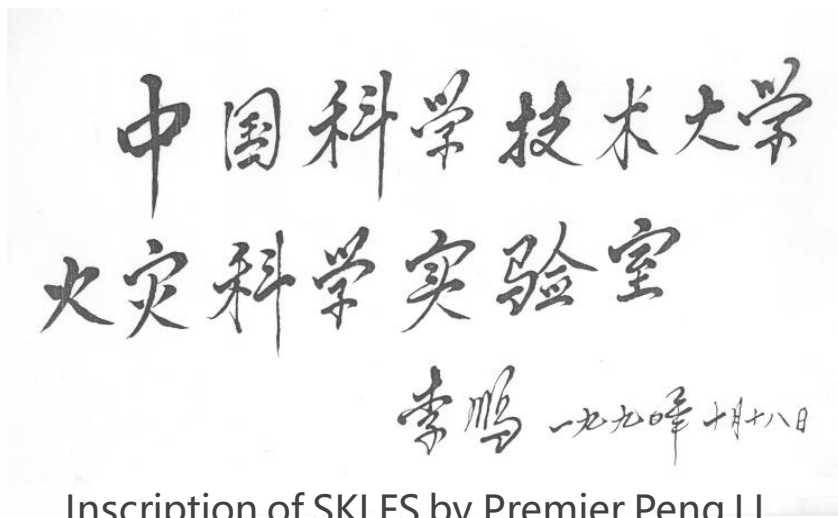 中国科学技术大学
火灾科学实验室
李鹏 一九九〇年十月十八日
Inscription of SKLFS by Premier Peng LI